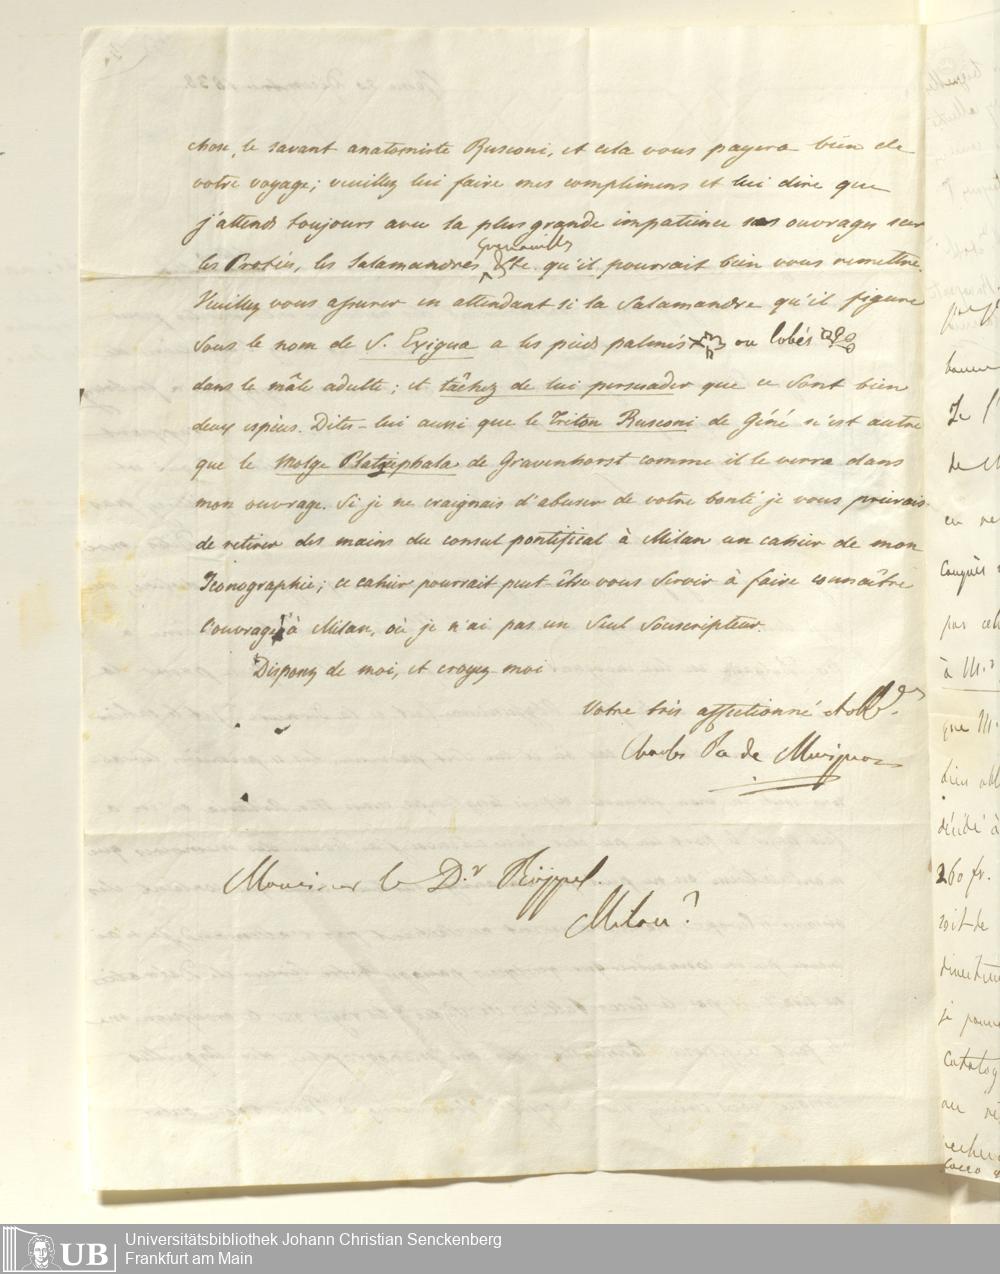 chose, le savant anatomiste Rusconi, et cela vous payera bien de
votre voyage; veuillez lui faire mes complimens et lui dire que
j'attends toujours avec la plus grande impatience ses ouvrages sur
Grenouilles
les Protées, les Salamandres &te. qu'il pourrait bien vous remettre.
Veuillez vous assurer en attendant si la Salamandre qu'il figure
sous le nom de S. Exigua a les pieds palmés ou lobés
dans le mâle adulte; et tâchez de lui persuader que ce sont bien
deux espèces. Dites-lui aussi que le Triton Rusconi de Géné n'est autre
que le Molge Platycephala de Gravenhorst comme il le verra dans
mon ouvrage. Si je ne craignais d'abuser de votre bonté je vous prierais
de retirer des mains du consul pontifical à Milan un cahier de mon
Iconographie; ce cahier pourrait peut être vous servir à faire connaître
l'ouvrage à Milan, où je n'ai pas un seul souscripteur.
Disposez de moi, et croyez moi
Votre très affectionné
Charles de
Monsieur le D.r Rüppel.
Milan
à M.r
que M.
décidé à
260 fr.
soit de
Universitätsbibliothek Johann Christian Senckenberg
UB Frankfurt am Main